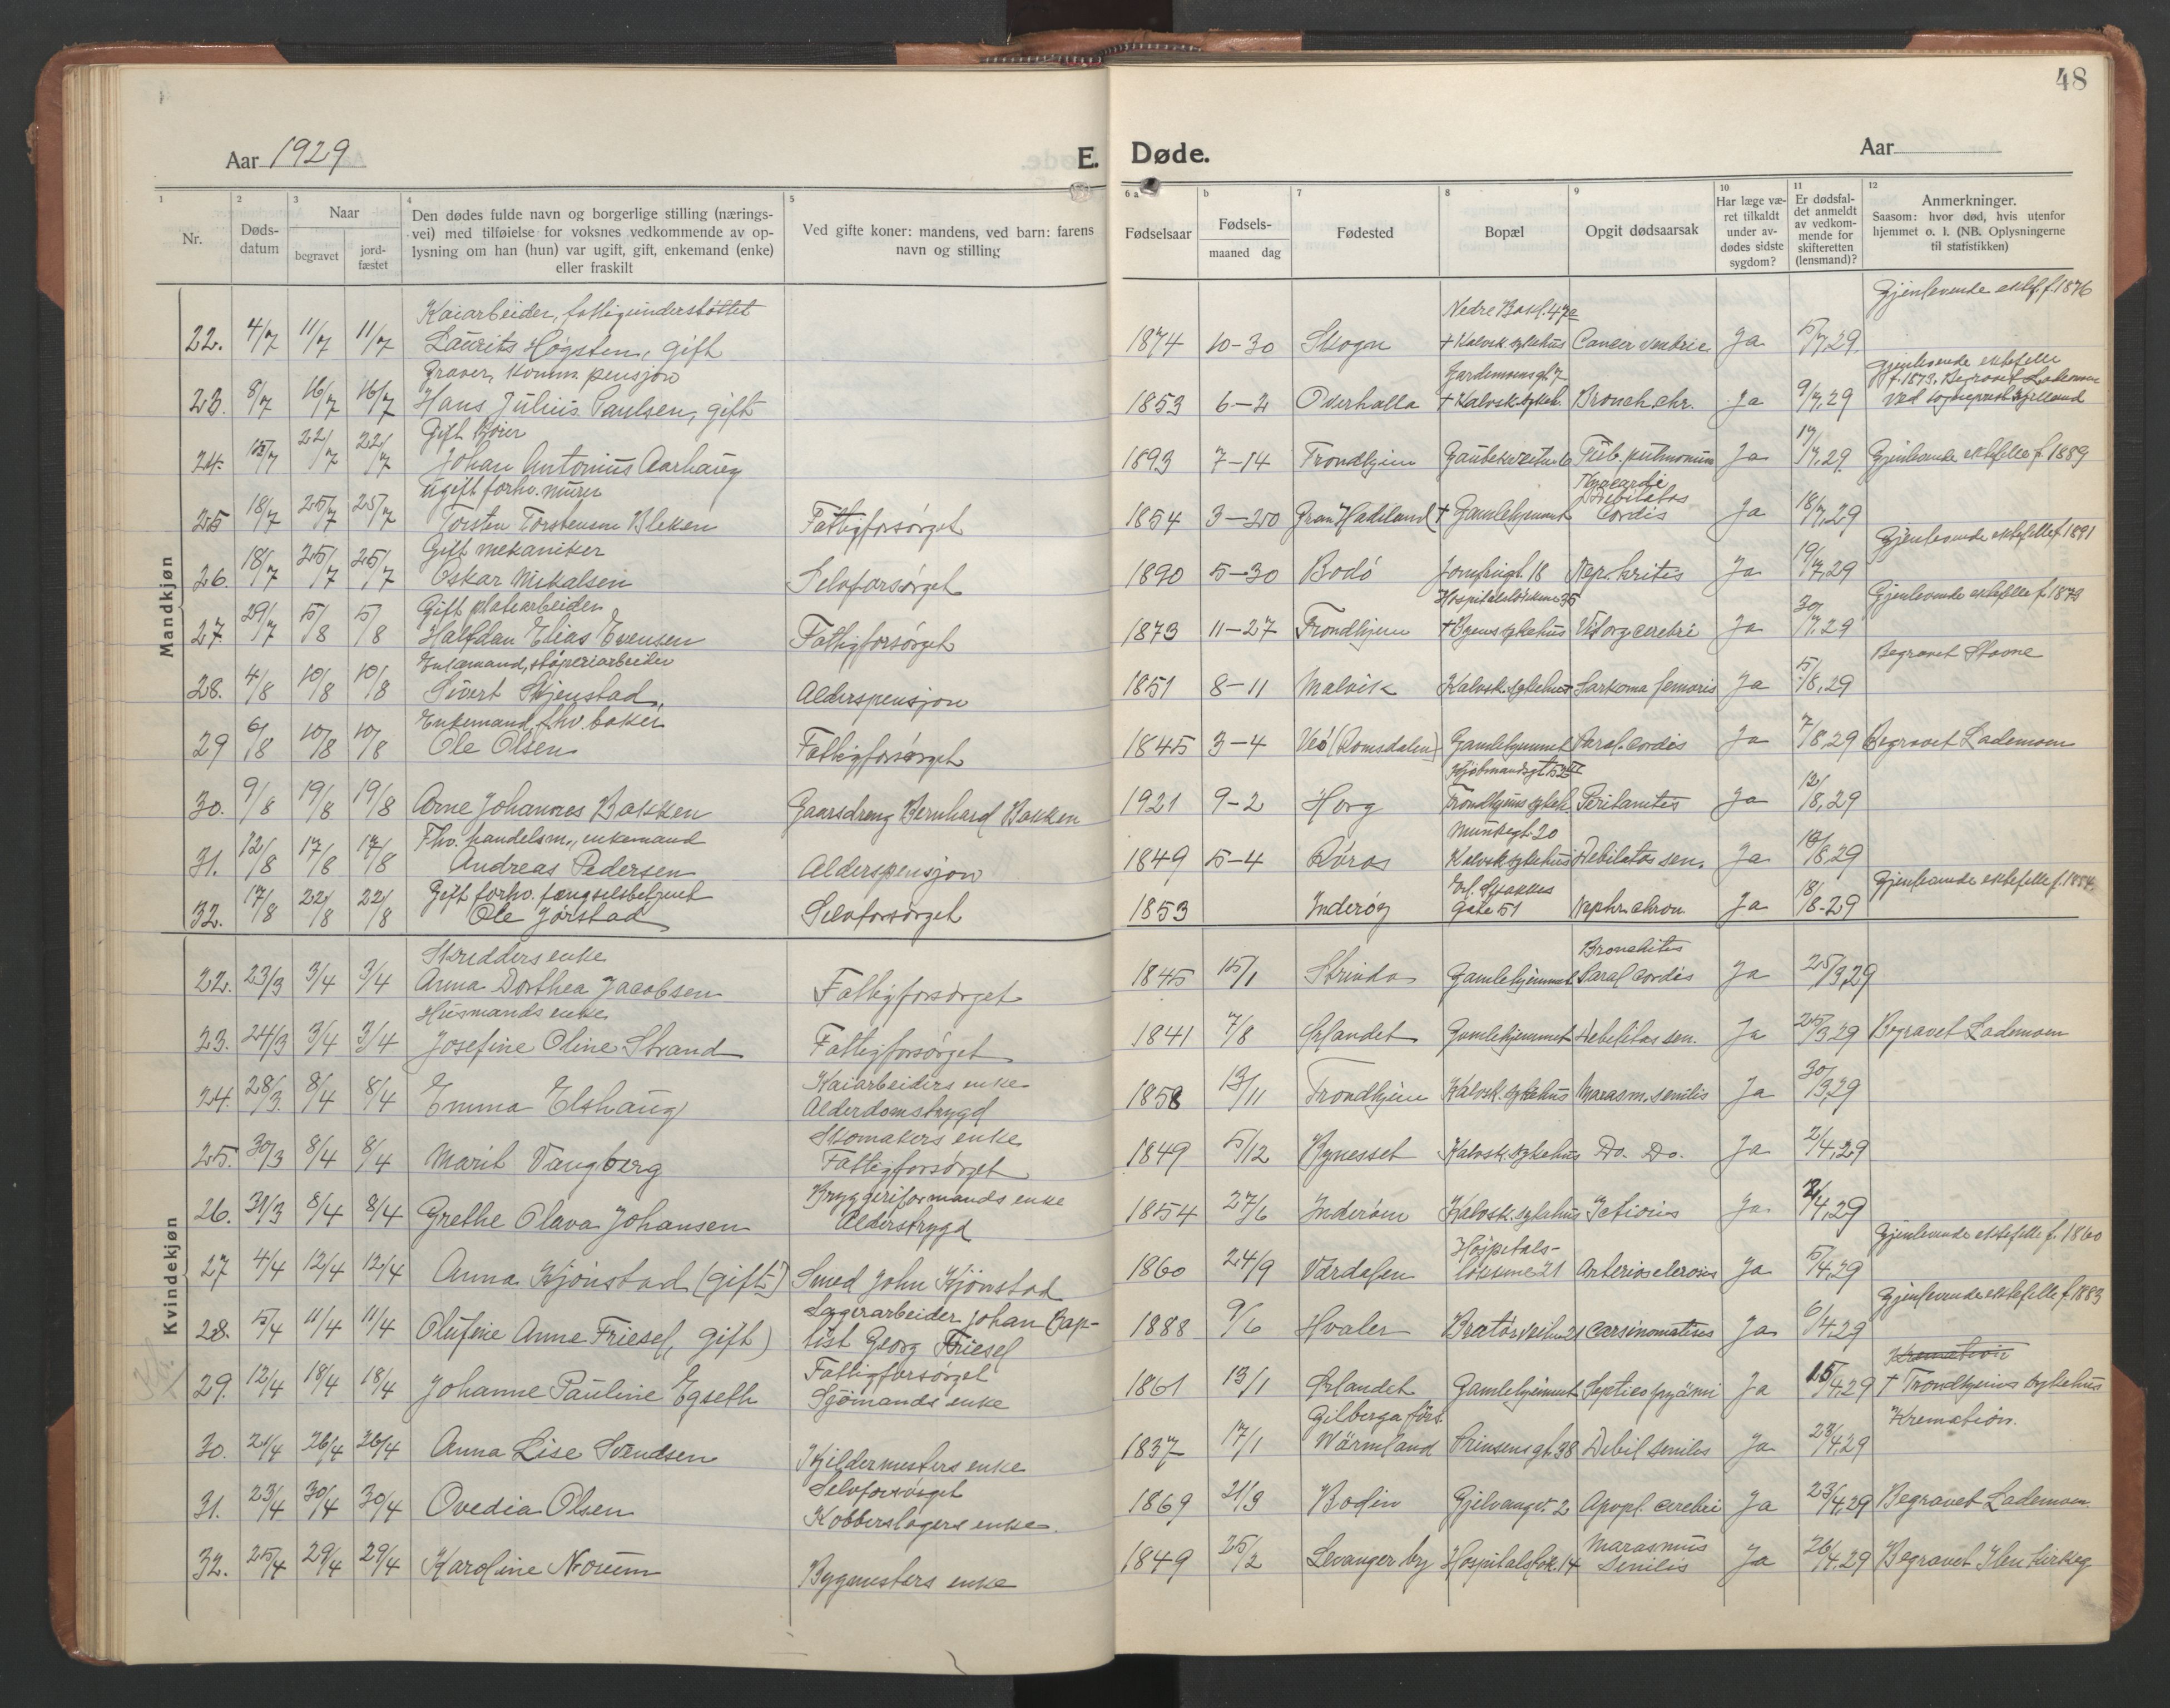 48
Aar 1929
E. Døde.
Aar
1
2
3
4
5
6 a
b
7
8
9
10
11
12
Nr.
Dødsdatum
Naar
begravet
jordfæstet
Den dødes fulde navn og borgerlige stilling (nærings-
vei) med tilføielse for voksnes vedkommende av op-
lysning om han (hun) var ugift, gift, enkemand (enke)
eller fraskilt
Ved gifte koner: mandens, ved barn: farens
navn og stilling
Fødselsaar
Fødsels-
maaned dag
Fødested
Bopæl
Opgit dødsaarsak
Har læge væ-
ret tilkaldt
under av-
dødes sidste
sygdom?
Er dødsfal-
det anmeldt
av vedkom-
mende for
skifteretten
(lensmand)?
Anmerkninger.
Saasom: hvor død, hvis utenfor
hjemmet o. l. (NB. Oplysningerne
til statistikken)
Mandkjøn
Kaiarbeider, fattigunderstøttet
Nedre Bakl. 47a
Gjenlevende ektef. f. 1876
22. 4/7 11/7 11/7 Laurits Høgsten, gift 1874 10-30 Skogn + Kalvsk. sykehus Cancer ventric Ja 5/7.29.
Graver, komm. pensjon
Jardemoensgt. 7
Gjenlevende ektefelle
f. 1873. Begravet Lademoen
23. 8/7 16/7 16/7 Hans Julius Paulsen, gift 1853 6-2 Overhalla + Kalvsk. sykeh. Bronch. chr. Ja 9/7.29 ved sogneprest
Gift
24. 15/7 22/7 22/7 Johan Antonius Aarhaug 1893 7-14 Trondhjem Gaubekveita 6 Tub. pulmonum Ja 17/7.29 Gjenlevende ektefelle f. 1889
Ugift forhv. murer
Debilitas
25 18/7 25/7 25/7 Torsten Torstensen Bleken Fattigforsørget 1854 3-20 Gran Hadeland + Gamlehjemmet Cordis Ja 18/7.29
Gift mekaniker
Gjenlevende ektefelle f. 1891
26. 18/7 25/7 25/7 Oskar Mikalsen Selvforsørget 1890 5-30 Bodø Jomfrugt. 18 Nephritis Ja 19/7.29
Gift platearbeider
Hospitalsløkken 35
Gjenlevende ektefelle f. 1879
27. 29/7 5/8 5/8 Halfdan Elias Evensen Fattigforsørget 1873 11-27 Trondhjem + Byens sykehus Vit. org cerebri Ja 30/7.29
Enkemand, støperiarbeider
Begravet Stavne
28. 4/8 10/8 10/8 Sivert Stjenstad Alderspensjon 1851 8-11 Malvik Kalvsk. sykehus Sarkoma femoris Ja 5/8.29
Enkemand, fhv. baker
29 6/8 10/8 10/8 Ole Olsen Fattigforsørget 1845 3-4 Veø (Romsdalen) Gamlehjemmet Paral. cordis Ja 7/8.29 Begravet Lademoen
Kjøbmandsgt 52
30. 9/8 19/8 19/8 Arne Johannes Bakken Gaarsdreng Bernhard Bakken 1921 9-2 Horg Trondhjems sykeh. Peritonites Ja 12/8.29
Fhv. handelsm., enkemand
Munkegt. 20
31. 12/8 17/8 17/8 Andreas Pedersen Alderspensjon 1849 5-4 Røros Kalvsk sykehus Debilitas sen. Ja /8.29
Gift forhv. fængselsbetjent
Erl. Skakkes
Gjenlevende ektefelle f.
32. 17/8 22/8 22/8 Ole Jørstad Selvforsørget 1853 Inderøy Gate 51 Nephr. chron. Ja 18/8-29
Kvindekjøn
Skredders enke
Bronchites
22. 23/3 3/4 3/4 Anna Dorthea Jacobsen Fattigforsørget 1845 15/1 Strinda Gamlehjemmet Paral cordis Ja 25/3.29
Husmands enke
23. 24/3 3/4 3/4 Josefine Oline Strand Fattigforsørget 1841 7/8 Ørlandet Gamlehjemmet Debilitas sen. Ja 25/3.29 Begravet Lademoen
Kaiarbeiders enke
24. 28/3. 8/4 8/4 Emma Elshaug Alderdomstrygd 1858 13/11 Trondhjem Kalvsk. sykehus Marasm. senilis Ja 30/3.29
Skomakers enke
25. 30/3 8/4 8/4 Marit Vangberg Fattigforsørget 1849 5/12 Bynesset Kalvsk. sykehus Do. Do. Ja 2/4.29
Bryggeriformands enke
26. 31/3 8/4 8/4 Grethe Olava Johansen Alderstrygd 1854 27/6 Inderøen Kalvsk. sykehus Icterus Ja 2/4.29
Hospitals-
Gjenlevende ektefelle f. 1860
27 4/4 12/4 12/4 Anna Kjönstad (gift) Smed John Kjönstad 1860 24/9 Værdalen løkkene 21 Arteriosclerosis Ja 5/4.29
Lagerarbeider Johan Bap-
Gjenlevende ektefelle f. 1883
28. 5/4 11/4 11/4 Olufine Anne Friesel, gift) tist Georg Friesel 1888 9/6 Hvaler Bratørveiten 21 Carsinomatises Ja 6/4.29
Fattigforsørget
Kremation
29. 12/4 18/4 18/4 Johanne Pauline Egseth Sjømands enke 1861 13/1 Ørlandet Gamlehjemmet Septico pyämi Ja 15/4.29 + Trondhjems sykehus
Gilberga förs.
Kremation.
30. 21/4 26/4 26/4 Anna Lise Svendsen Kjeldermesters enke 1837 17/1 Wärmland Prinsensgt. 38 Debil senilis Ja 23/4.29
Selvforsørget
31. 23/4 30/4 30/4 Ovedia Olsen Kobberslagers enke. 1869 21/3 Bodin Gjelvangv. 2 Apopl. cerebri Ja 23/4.29 Begravet Lademoen
Marasmus
32. 25/4 29/4 29/4 Karoline Norum Bygmesters enke 1849 25/2 Levanger by Hospitalsløk. 14 Senilis Ja 26/4.29 Begravet Ilen kirkeg